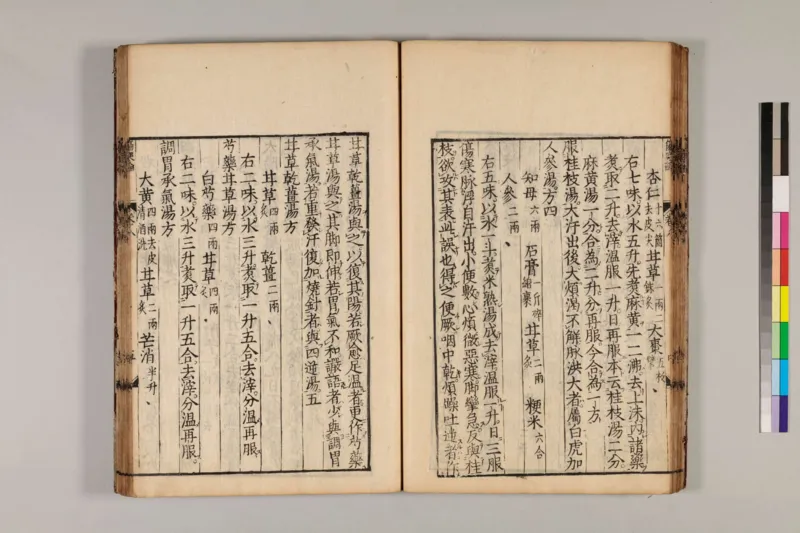 杏仁十六箇去皮尖甘草一兩二銖炙大棗五枚擘
右七味以水五升先煑麻黄一二沸去上沫内諸藥
煑取二升去滓温服一升日再服本云桂枝湯二分
麻黄湯一分合為二升分再服今合為一方
服桂枝湯大汗出後大煩渴不解脉洪大者屬白虎加
人參湯方四
知母六兩石膏一斤碎綿褁甘草二兩炙粳米六合
人參二兩
右五味以水一斗煑米熟湯成去滓温服一升日三服
傷寒脉浮自汗出小便數心煩微惡寒脚攣急反與桂
枝欲攻其表此誤也得之便厥咽中乾煩躁吐逆者作
甘草乾薑湯與之以復其陽若厥愈足温者更作芍藥
甘草湯與之其脚即伸若胃氣不和讝語者少與調胃
承氣湯若重發汗復加燒針者與四逆湯五
甘草乾薑湯方
甘草四兩炙乾薑二兩
右二味以水三升煑取一升五合去滓分温再服
芍藥甘草湯方
白芍藥四兩甘草四兩炙
右二味以水三升煑取一升五合去滓分温再服
調胃承氣湯方
大黄四兩去皮清酒洗甘草二兩炙芒消半升